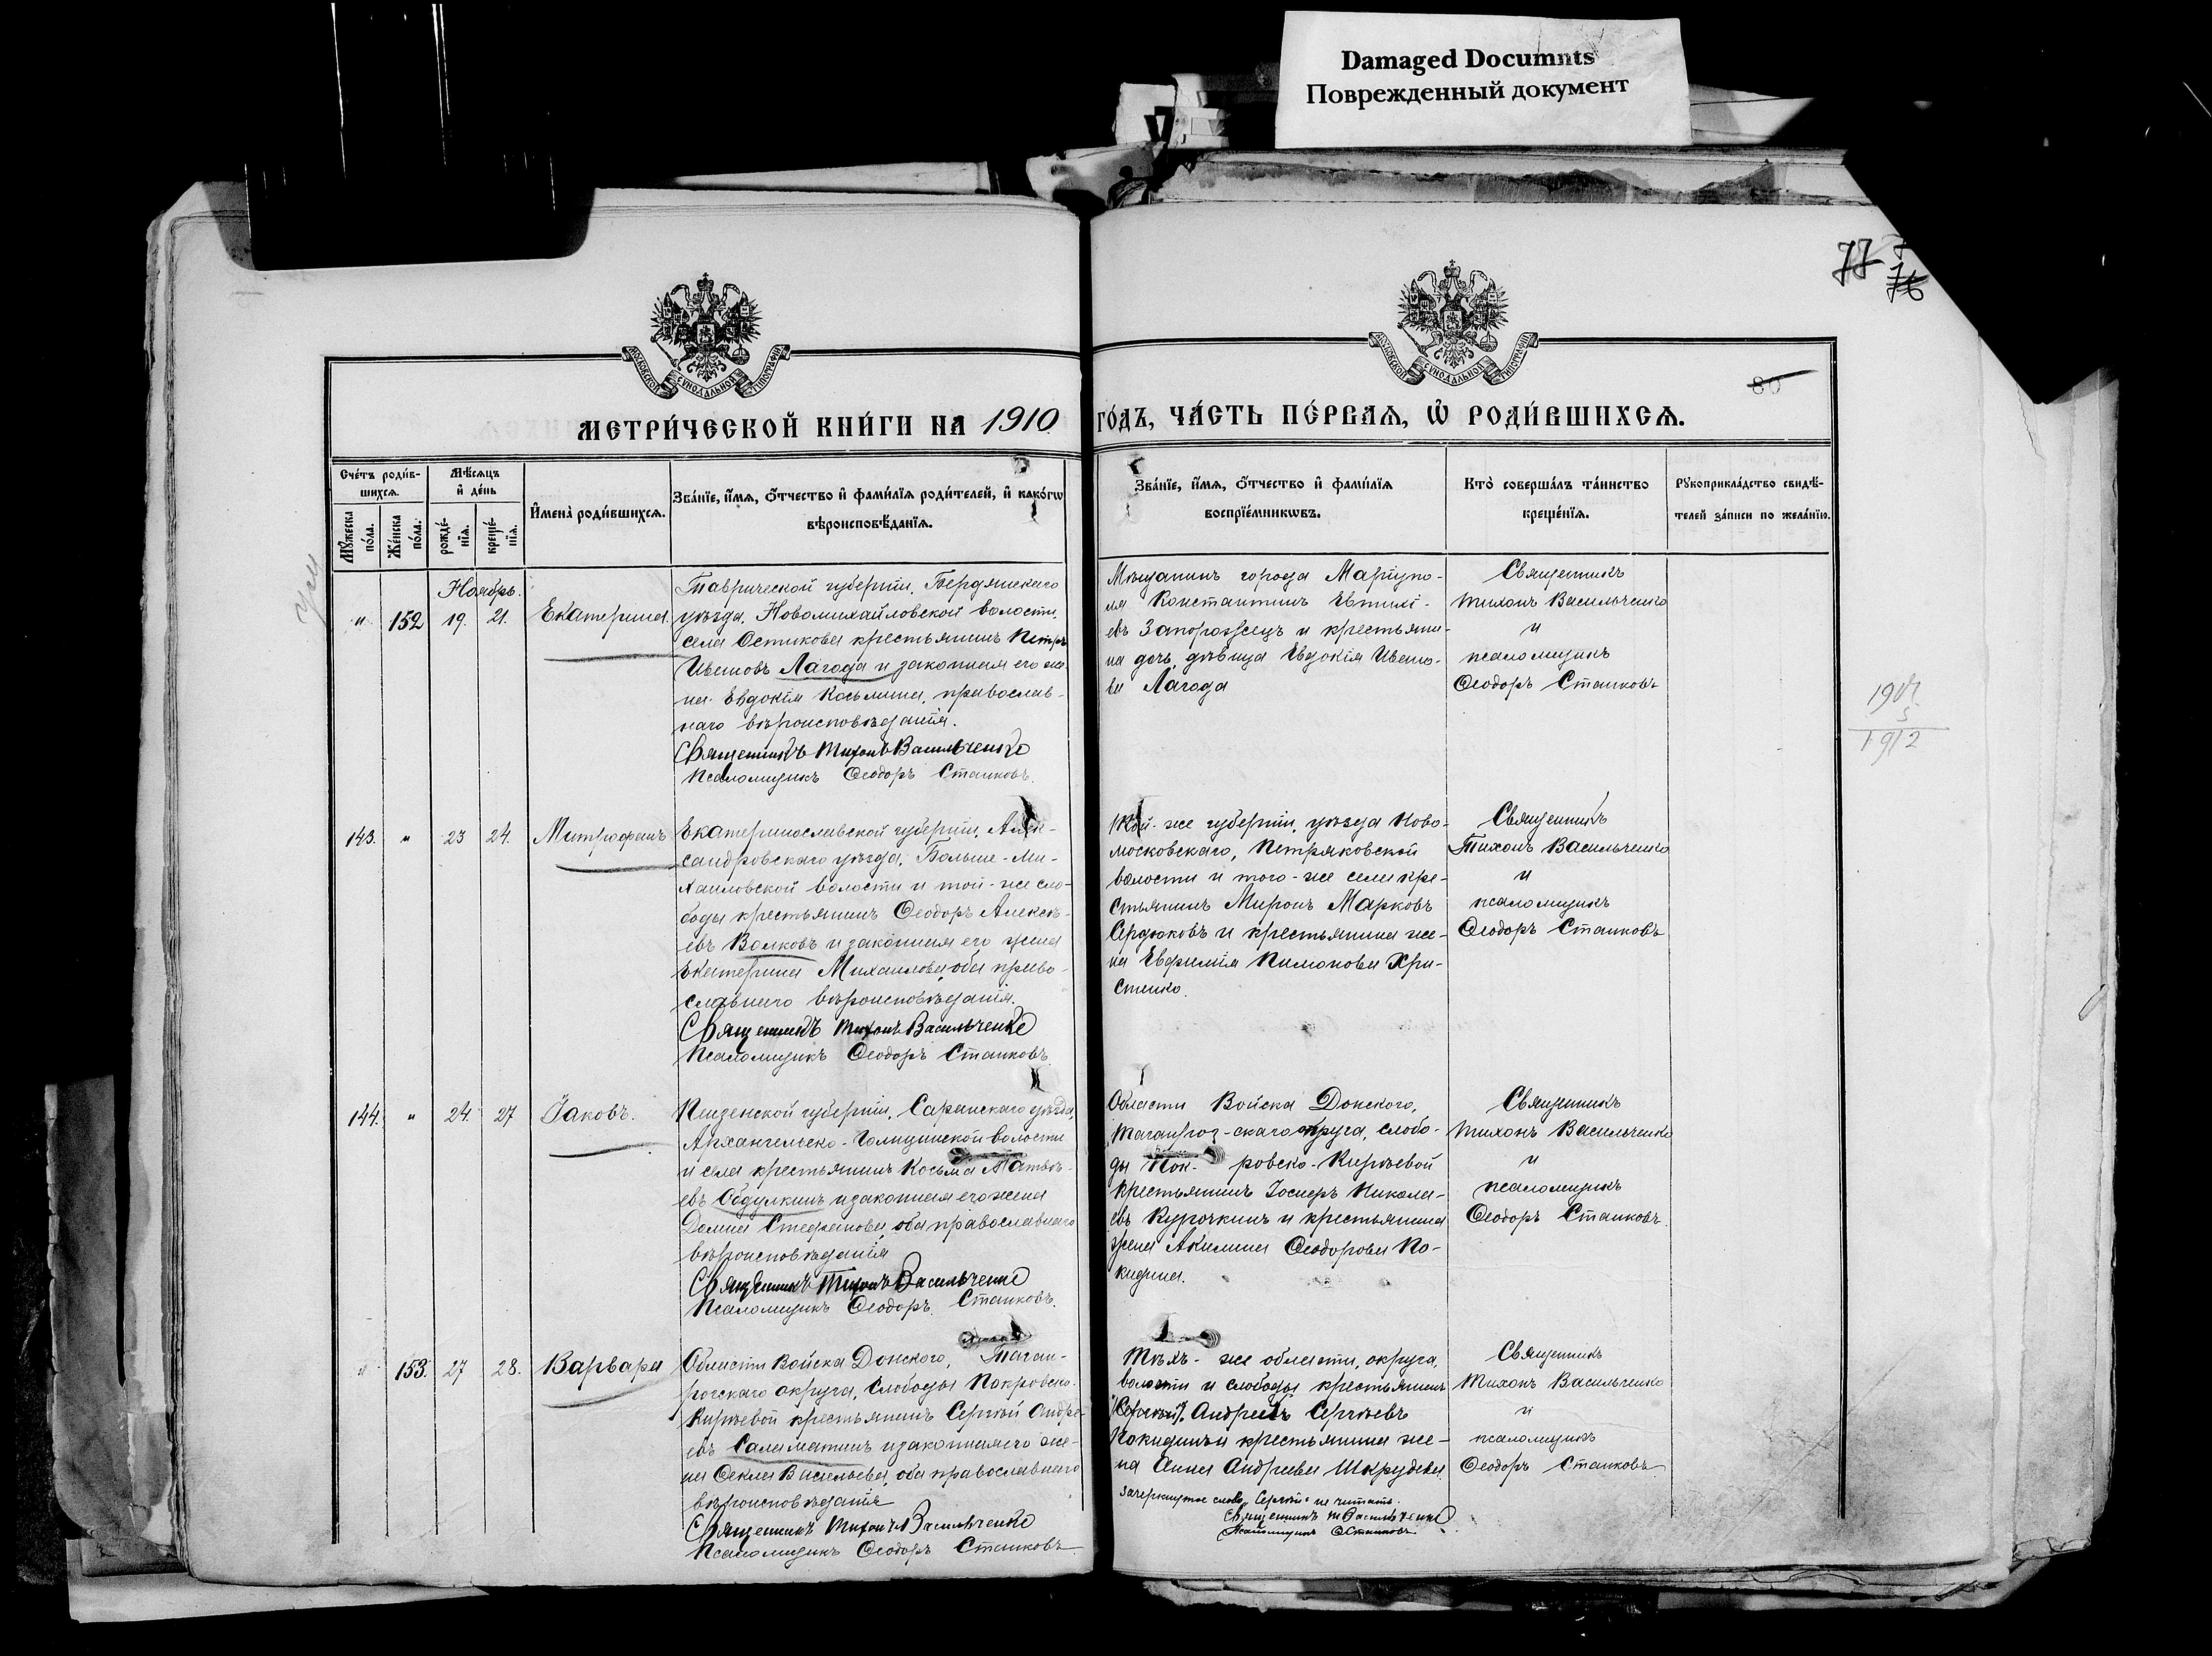 Damaged Documnts
Поврежденный документ
77
76
80
МОСКОВСКОЙ СѴНОДАЛЬНОЙ ТИПОГРАФІИ
МОСКОВСКОЙ СѴНОДАЛЬНОЙ ТИПОГРАФІИ
МЕТРИ́ЧЕСКОЙ КНИ́ГИ НА 1910 ГО́ДЪ, ЧА́СТЬ ПЕ́РВАЯ, Ѽ РОДИ́ВШИХСЯ.
Сче́тъ роди́в-
шихся.
Мѣ́сяцъ
и҆ де́нь
Мꙋ́жеска по́ла.
Же́нска по́ла.
рожде́-
нїѧ.
креще́-
нїѧ.
И҆мена̀ роди́вшихся.
Зва́нїе, и҆́мѧ, ѻ҆́тчество и҆ фами́лїѧ роди́телей, и҆ како́гѡ
вѣроисповѣ́данїѧ.
Зва́нїе, и҆́мѧ, ѻ҆́тчество и҆ фами́лїѧ
воспрїе́мникѡвъ.
Кто̀ соверша́лъ та́инство
креще́нїѧ.
Рꙋкоприкла́дство свидѣ́-
телей за́писи по жела́нїю.
Ноябрь.
" 152 19. 21. Екатерина.
Таврической губерніи, Бердянскаго
уѣзда, Новомихайловской волости,
села Остикова крестьянинъ Петръ
Ивановъ Лагода и законная его же-
на Евдокія Косьмина, православ-
наго вѣроисповѣданія.
Священникъ Тихонъ Васильченко
Псаломщикъ Ѳеодоръ Станковъ.
Мѣщанинъ города Маріупо-
ля Константинъ Евтихі-
евъ Запорожецъ и крестьяни-
на дочь, дѣвица Евдокія Ивано-
ва Лагода
Священникъ
Тихонъ Васильченко
и
псаломщикъ
Ѳеодоръ Станковъ
1907
5
1912
143. " 23 24. Митрофанъ
Екатеринославской губерніи, Алек-
сандровскаго уѣзда, Больше-Ми-
хаиловской волости и той-же сло-
боды крестьянинъ Ѳеодоръ Алексѣ-
евъ Волковъ и законная его жена
Екатерина Михаилова, оба право-
славнаго вѣроисповѣданія.
Священникъ Тихонъ Васильченко
Псаломщикъ Ѳеодоръ Станковъ.
же губерніи, уѣзда Ново-
московскаго, Петряковской
волости и того-же села кре-
стьянинъ Миронъ Марковъ
Сердюковъ и крестьянина же-
на Евфимія Пимонова Хри-
стенко.
Священникъ
Тихонъ Васильченко
и
псаломщикъ
Ѳеодоръ Станковъ
144. " 24 27 Іаковъ.
Пензенской губерніи, Саранскаго уѣзда,
Архангельско-Голицинской волости
и села крестьянинъ Косьма Матвѣ-
евъ Обдулкинъ и законная его жена
Домна Стефанова, оба православнаго
вѣроисповѣданія
Священникъ Тихонъ Васильченко
Псаломщикъ Ѳеодоръ Станковъ.
Области Войска Донского,
Таганрог-скаго округа, слобо-
ды Пок-ровско-Кирѣевой
крестьянинъ Іосифъ Никола-
евъ Курочкинъ и крестьянина
жена Акилина Ѳеодорова По-
кидина.
Священникъ
Тихонъ Васильченко
и
псаломщикъ
Ѳеодоръ Станковъ.
" 153. 27 28. Варвара
Области Войска Донского, Таган-
рогскаго округа, слободы Покровско-
Кирѣевой крестьянинъ Сергѣй Андре-
евъ Саламатинъ и законная его же-
на Ѳекла Васильева, оба православнаго
вѣроисповѣданія
Священникъ Тихонъ Васильченко
Псаломщикъ Ѳеодоръ Станковъ
Тѣхъ-же области, округа,
волости и слободы крестьянинъ
"(Сергѣй)" Андрей Сергѣевъ
Покидинъ и крестьянина же-
на Анна Андреева Шкрудева.
Зачеркнутое слово „Сергѣй" не читать.
Священникъ Т Васильченко
Псаломщикъ Ѳ Станковъ.
Священникъ
Тихонъ Васильченко
и
псаломщикъ
Ѳеодоръ Станковъ.